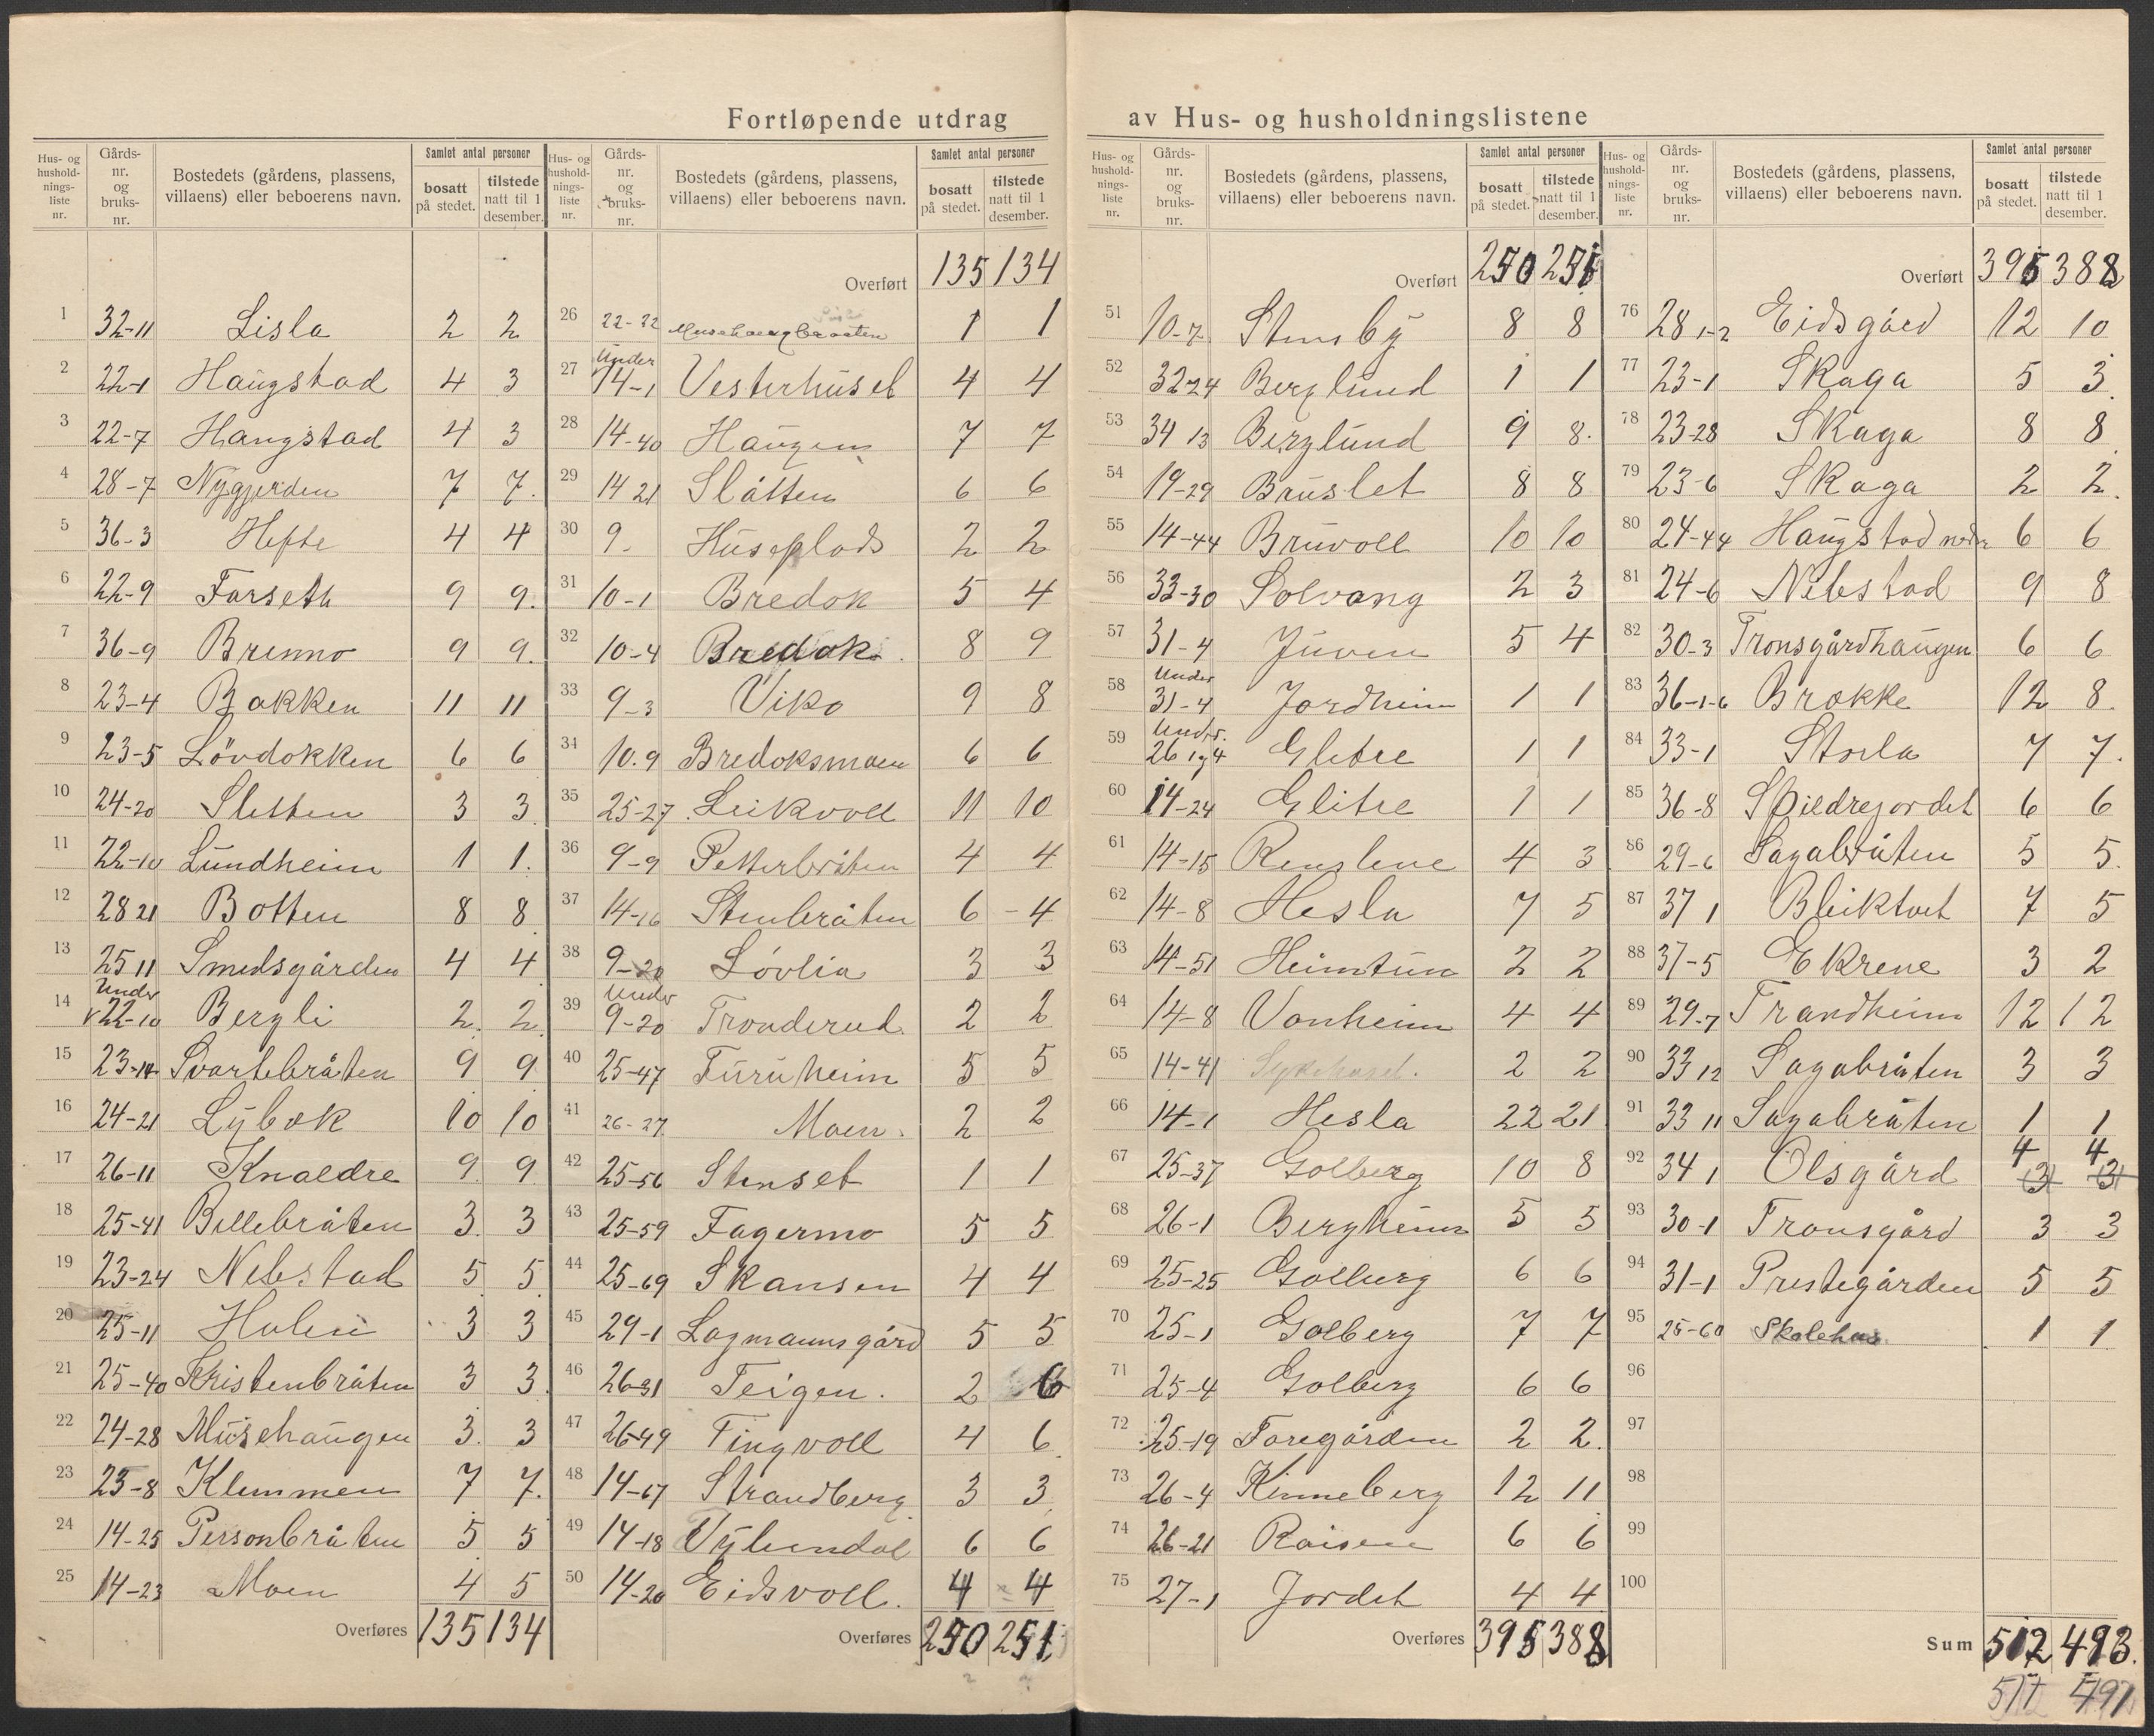 Fortløpende utdrag av Hus- og husholdningslistene
Hus- og hushold- nings- liste nr. Gårds- nr. og bruks- nr. Bostedets (gårdens, plassens, villaens) eller beboerens navn. Samlet antal personer bosatt på stedet. tilstede natt til 1 desember.
1 32-11 Lisla 2 2
2 22-1 Haugstad 4 3
3 22-7 Haugstad 4 3
4 28-7 Nygjerden 7 7.
5 36-3 Hefte 4 4
6 22-9 Forseth 9 9.
7 36-9 Brenno 9 9.
8 23-4 Bakken 11 11
9 23-5 Lövdokken 6 6
10 24-20 Sletten 3 3.
11 22-10 Lundheim 1 1.
12 28 21 Botten 8 8
13 25 11 Smedsgården 4 4
14 Under 22-10 Bergli 2. 2
15 23-14 Svartebråten 9 9
16 24-21 Lybæk 10 10
17 26-11 Knaldre 9. 9
18 25-41 Billebråten 3. 3
19 23-24 Nebstad 5 5
20 25-11 Holen 3 3
21 25-40 Kristenbråten 3 3.
22 24-28 Musehaugen 3. 3
23 23-8 Klemmen 7 7.
24 14-25 Personbråten 5 5
25 14-23 Moen 4 5
Overføres 135 134
Hus- og hushold- nings- liste nr. Gårds- nr. og bruks- nr. Bostedets (gårdens, plassens, villaens) eller beboerens navn. Samlet antal personer bosatt på stedet. tilstede natt til 1 desember.
Overført 135 134
26 22-32 1 1
27 Under 14-1 Vesterhuset 4 4
28 14-40 Haugen 7 7
29 14 21 Slåtten 6 6
30 9- Huseplads 2 2
31 10-1 Bredok 5 4
32 10-4 Bredok 8 9
33 9-3 Viko 9 8
34 10.9 Bredoksmoen 6 6
35 25-27 Leikvoll 11 10
36 9-9 Petterbråten 4 4
37 14-16 Stenbråten 6 - 4
38 9-20 Lövlia 3 3
39 Under 9-20 Tronderud 2 2
40 25-47 Furuheim 5 5
41 26-27 Moen. 2 2
42 25-56 Stenset 1 1
43 25-59 Fagermo 5 5
44 25-69 Skansen 4 4
45 29-1 Lagmannsgård 5 5
46 26-31 Teigen. 2 6
47 26-49 Tingvoll 4 6
48 14-67 Strandberg 3 3
49 14-18 6 6
50 14-20 Eidsvoll. 4 4
Overføres 250 251
Hus- og hushold- nings- liste nr. Gårds- nr. og bruks- nr. Bostedets (gårdens, plassens, villaens) eller beboerens navn. Samlet antal personer bosatt på stedet. tilstede natt til 1 desember.
Overført 250 251
51 10-7 Stensby 8 8
52 32-24 Berglund 1 1
53 34 13 Berglund 9 8.
54 19-29 Bruslet 8 8
55 14-44 Bruvoll 10 10
56 33-30 Solvang 2 3
57 31-4 Juven 5 4
58 Under 31-4 Jordheim 1 1
59 Under. 26 1 og 4 Glitre 1 1
60 14-24 Glitre 1 1
61 14-15 Renslene 4 3
62 14-8 Hesla 7 5
63 14-51 Heimtun 2 2
64 14-8 Vonheim 4 4
65 14-41 Sykehuset. 2 2
66 14-1 Hesla 22 21
67 25-37 Golberg 10 8
68 26-1 Bergheim 5 5
69 25-25 Golberg 6 6
70 25-1 Golberg 7 7
71 25-4 Golberg 6 6
72 25-19 Foregården 2 2.
73 26-4 Kinneberg 12 11
74 26-21 Roisen 6 6
75 27-1 Jordet 4 4
Overføres 395 388
Hus- og hushold- nings- liste nr. Gårds- nr. og bruks- nr. Bostedets (gårdens, plassens, villaens) eller beboerens navn. Samlet antal personer bosatt på stedet. tilstede natt til 1 desember.
Overført 395 388
76 28 1-2 Eidsgård 12 10
77 23-1 Skaga 5 3.
78 23-28 Skaga 8 8
79 23-6 Skaga 2 2.
80 24-44 Haugstad nedre 6 6
81 24-6 Nebstad 9 8
82 30-3 Tronsgårdhaugen 6 6
83 36-1-6 Brokke 12 8.
84 33-1 Storla 7 7.
85 36-8 Skildregjordet 6 6
86 29-6 Sagabråten 5 5.
87 37 1 Bleiktvet 7 5
88 37-5 Ekrene 3 2
89 29-7 Trandheim 12 12
90 33 12 Sagabråten 3 3
91 33 11 Sagabråten 1 1
92 34 1 Olsgård 4 (3) 4 (3)
93 30-1 Tronsgård 3 3
94 31-1 Prestegården 5 5
95 25-60 Skolehus 1 1
96
97
98
99
100
Sum 512 493.
511 491